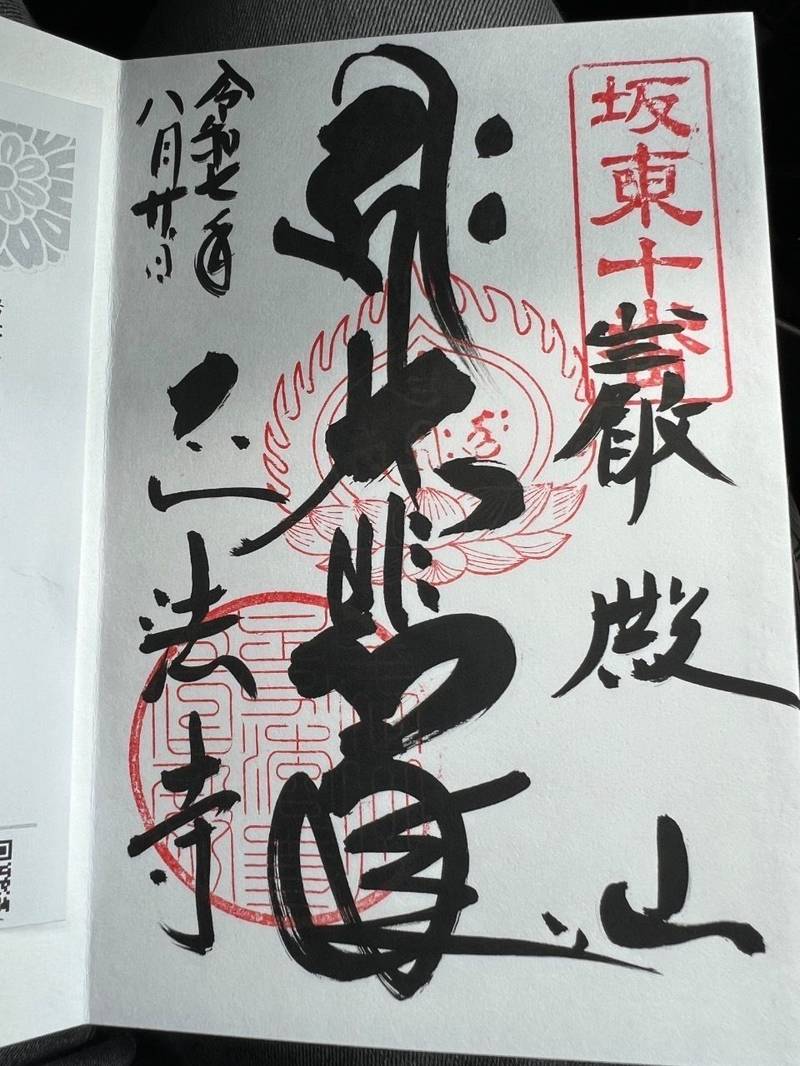 坂東十番
巌殿山
大悲尊
正法寺
令和七年
八月廿日